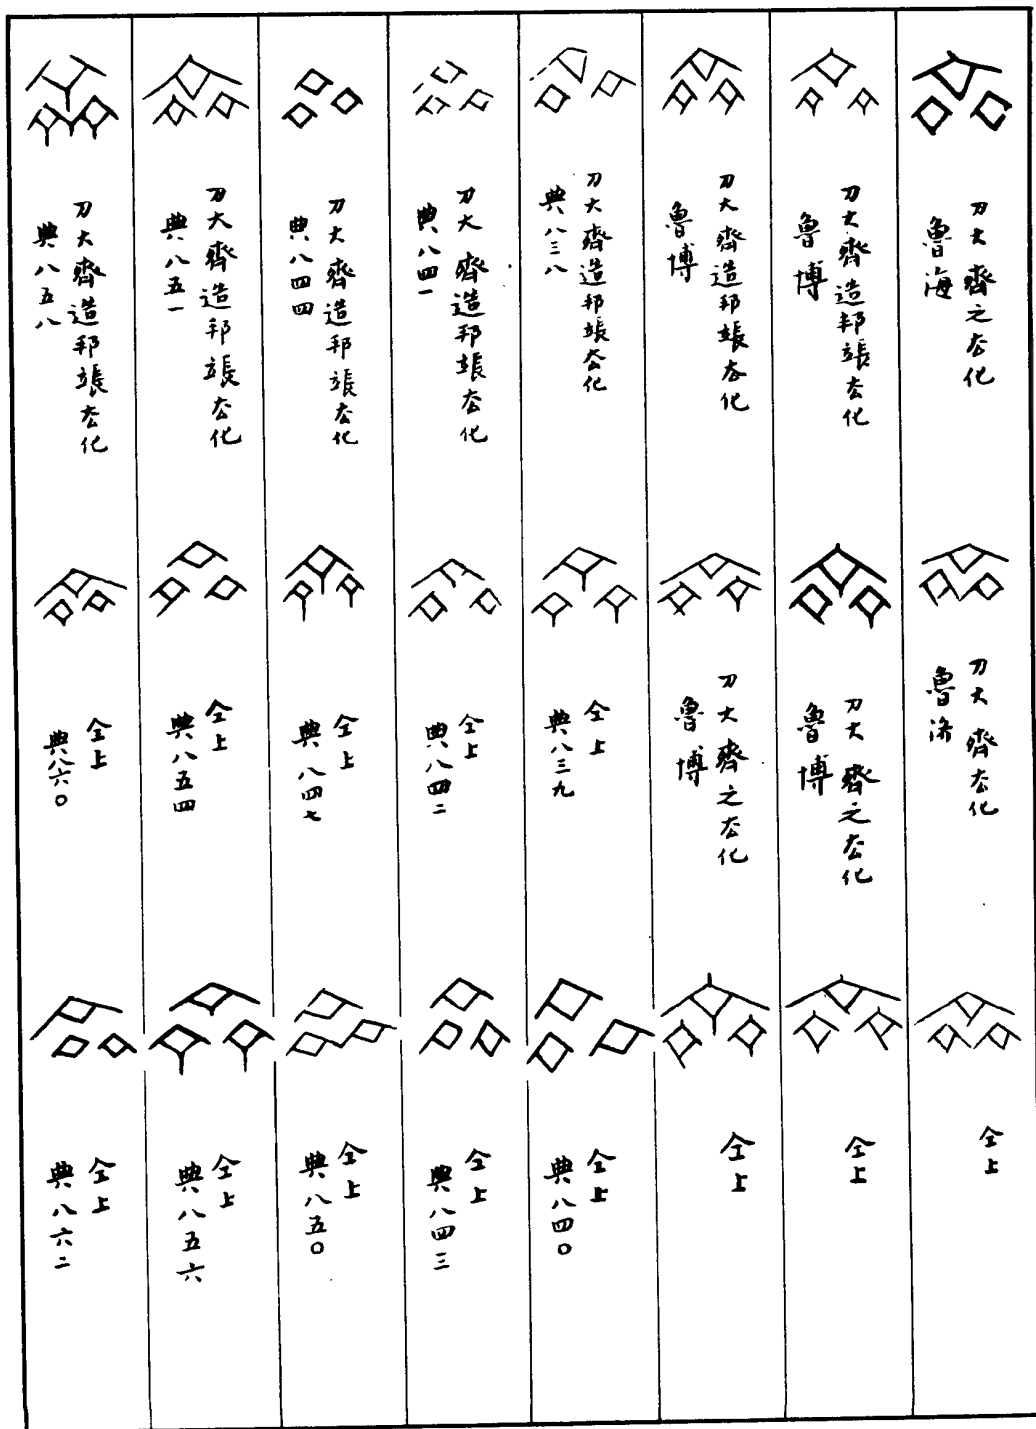 刀大齊之厺化
魯海
刀大齊厺化
魯济
仝上
刀大齊造邦䟫厺化
魯博
刀大齊之厺化
魯博
仝上
刀大齊造邦䟫厺化
魯博
刀大齊之厺化
魯博
仝上
刀大齊造邦䟫厺化
典八三八
仝上
典八三九
仝上
典八四〇
刀大齊造邦䟫厺化
典八四一
仝上
典八四二
仝上
典八四三
刀大齊造邦䟫厺化
典八四四
仝上
典八四七
仝上
典八五〇
刀大齊造邦䟫厺化
典八五一
仝上
典八五四
仝上
典八五六
刀大齊造邦䟫厺化
典八五八
仝上
典八六〇
仝上
典八六二